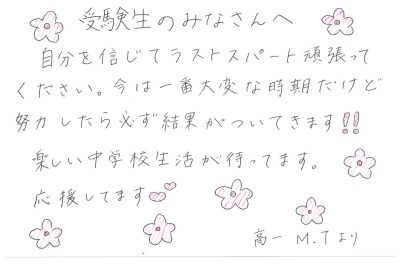 受験生のみなさんへ
自分を信じてラストスパート頑張って
ください。今は一番大変な時期だけど
努力したら必ず結果がついてきます!!
楽しい中学校生活が待ってます。
応援してます
高一 M.Tより